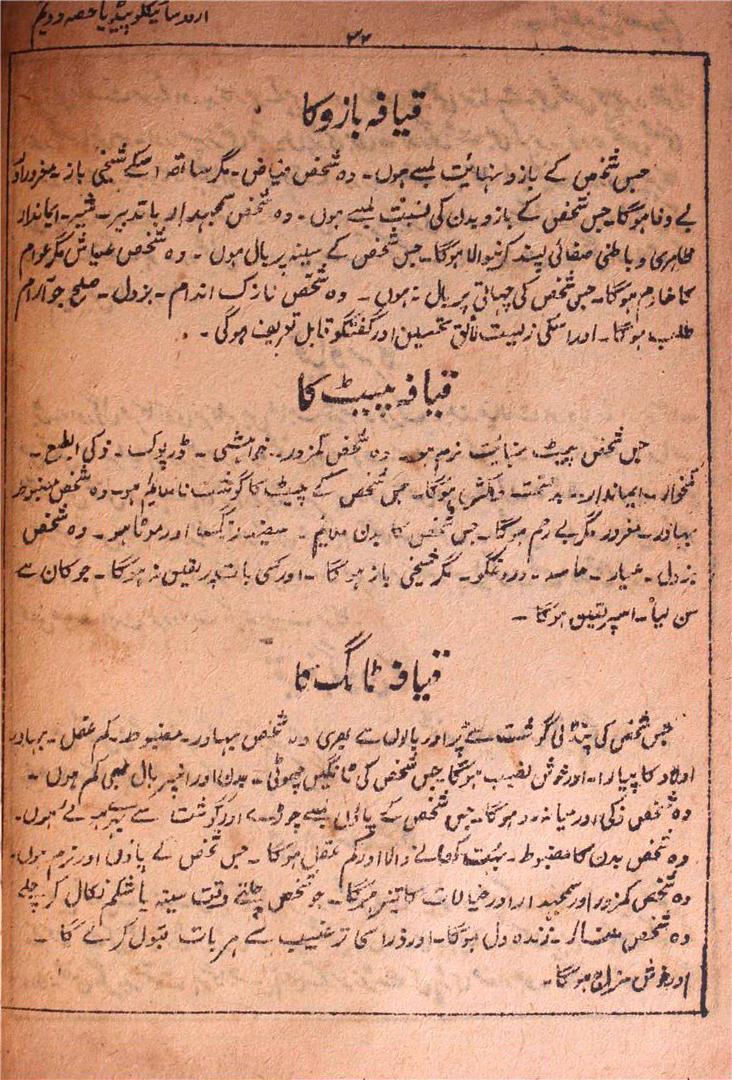 اردو سائیکلوپیڈیا حصہ دوئم
۳۲
قیافہ بازو کا
جس شخص کے بازو نہائیت لمبے ہوں۔ وہ شخص فیاض۔ مگر ساتھ اسکے شیخی باز۔ مغرور اور
بے وفا ہوگا۔ جس شخص کے بازو بدن کی نسبت لمبے ہوں۔ وہ شخص سمجہدار باتدبیر۔ ایماندار
ظاہری و باطنی صفائی پسند کرنیوالا ہوگا۔ جس شخص کے سینہ پر بال ہوں۔ وہ شخص عیاش مگر عوام
کا خادم ہوگا۔ جس شخص کی چہاتی پر بال نہ ہوں۔ وہ شخص نازک اندام۔ بزدل۔ صلح جو آرام
طلب ہوگا۔ اور اسکی زیست لائق تحسین اور گفتگو قابل تعریف ہوگی۔
قیافہ پیٹ کا
جس شخص پیٹ نہائیت نرم ہو۔ وہ شخص کمزور۔ ڈرپوک۔ ذکی الطبع۔
کمخوار۔ ایماندار۔ ہوگا۔ جس شخص کے پیٹ کا گوشت ناملائم ہو۔ وہ شخص مضبوط
بہادر۔ مغرور مگر بے رحم ہوگا۔ جس شخص کا بدن ملائم۔ سفید رنگ اور موٹا ہو۔ وہ شخص
بزدل۔ عیار۔ حاسد۔ دروغگو۔ مگر شیخی باز ہوگا۔ اور کسی بات پر یقین نہ ہوگا۔ جو کان سے
سن لیا۔ اسپر یقین ہوگا۔
قیافہ ٹانگ کا
جس شخص کی پنڈلی گوشت سے پُر اور بالوں سے بھری وہ شخص بہادر۔ مضبوط۔ کم عقل۔ بہادر
اولاد کا پیارا۔ اور خوش نصیب ہوگا۔ جس شخص کی ٹانگیں چھوٹی۔ بدن اور انپر بال بھی کم ہوں۔
وہ شخص ذکی اور میانہ رو ہوگا۔ جس شخص کے پاؤں لمبے چوڑے اور گوشت سے بہرے ہوئے ہوں۔
وہ شخص بدن کا مضبوط۔ بہت کھانے والا اور کم عقل ہوگا۔ جس شخص کے پاؤں اور نرم ہوں۔
وہ شخص کمزور اور سمجہدار اور خیالات کا تیز ہوگا۔ جو شخص چلتے وقت سینہ یا شکم نکال کر چلے
وہ شخص ملنسار۔ زندہ دل ہوگا۔ اور ذرا سی ترغیب سے ہر بات قبول کرلے گا۔
اور خوش مزاج ہوگا۔